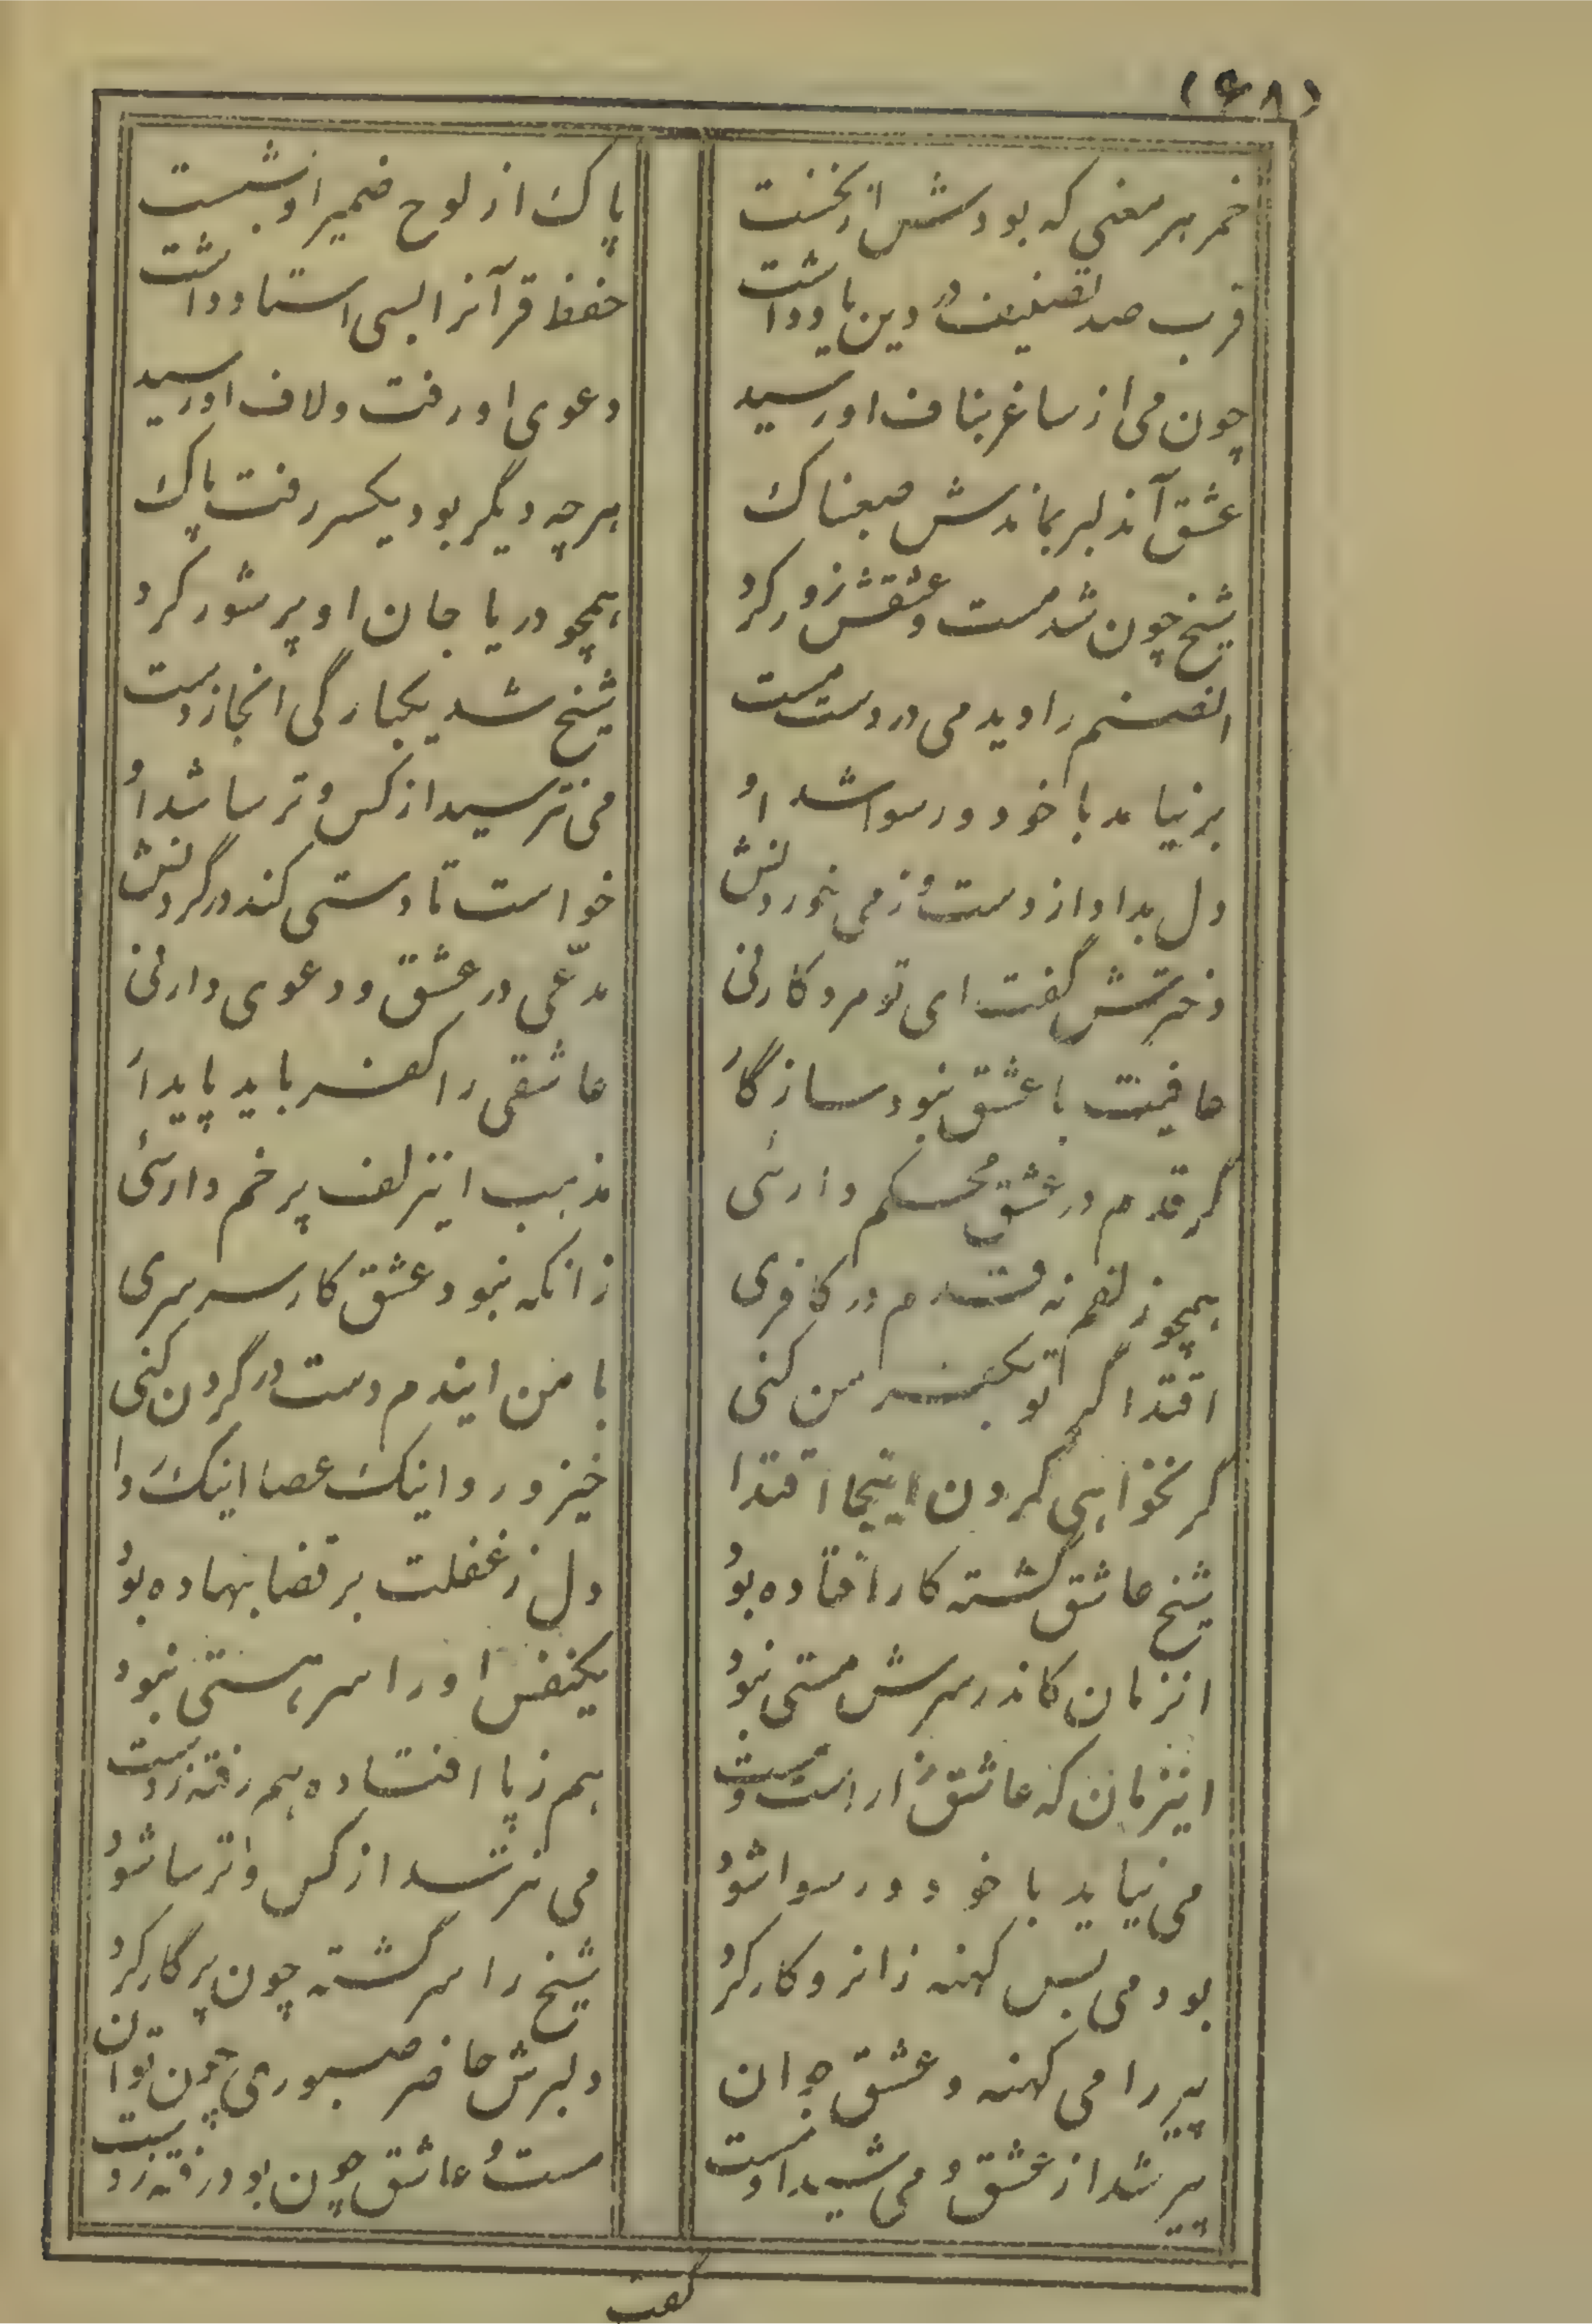 (۶۸)
خمر هر معنی که بودش از نخست
پاک از لوح ضمیر او بشست
قرب صد تصنیف در دین یاد داشت
حفظ قرآنرا بسی استاد داشت
چون می از ساغر بناف او رسید
دعوی او رفت و لاف او رسید
عشق آندلبر بماندش صعبناک
هرچه دیگر بود یکسر رفت پاک
شیخ چون شد مست و عشقش زور کرد
همچو دریا جان او پر شور کرد
انصنم را دید می در دست مست
شیخ شد یکبارگی انجا ز دست
برنیامد با خود و رسوا شد او
می نترسید از کس و ترسا شد او
دل بداد از دست و ز می خوردنش
خواست تا دستی کند در گردنش
دخترش گفت ای تو مرد کار نی
مدّعی در عشق و دعوی دار نی
عافیت با عشق نبود سازگار
عاشقی را کفر باید پایدار
گر قدم در عشق محکم دارئی
مذهب اینزلف پر خم دارئی
همچو زلفم نه قدم در کافری
زانکه نبود عشق کار سرسری
اقتدا گر تو بکفر من کنی
با من ایندم دست در گردن کنی
گر نخواهی کردن اینجا اقتدا
خیز و رو اینک عصا اینک ردا
شیخ عاشق گشته کار افتاده بود
دل ز غفلت بر قضا بنهاده بود
انزمان کاندر سرش مستی نبود
یکنفس او را سر هستی نبود
اینزمان که عاشق زار است و مست
هم ز پا افتاده هم رفته ز دست
می نیاید با خود و رسوا شود
می نترسد از کس و ترسا شود
بود می بس کهنه زانرو کار کرد
شیخ را سرگشته چون پرگار کرد
پیر را می کهنه و عشق جوان
دلبرش حاضر صبوری چون توان
پیر شد از عشق و می شیدا و مست
مست و عاشق چون بود رفته ز دست
گفت